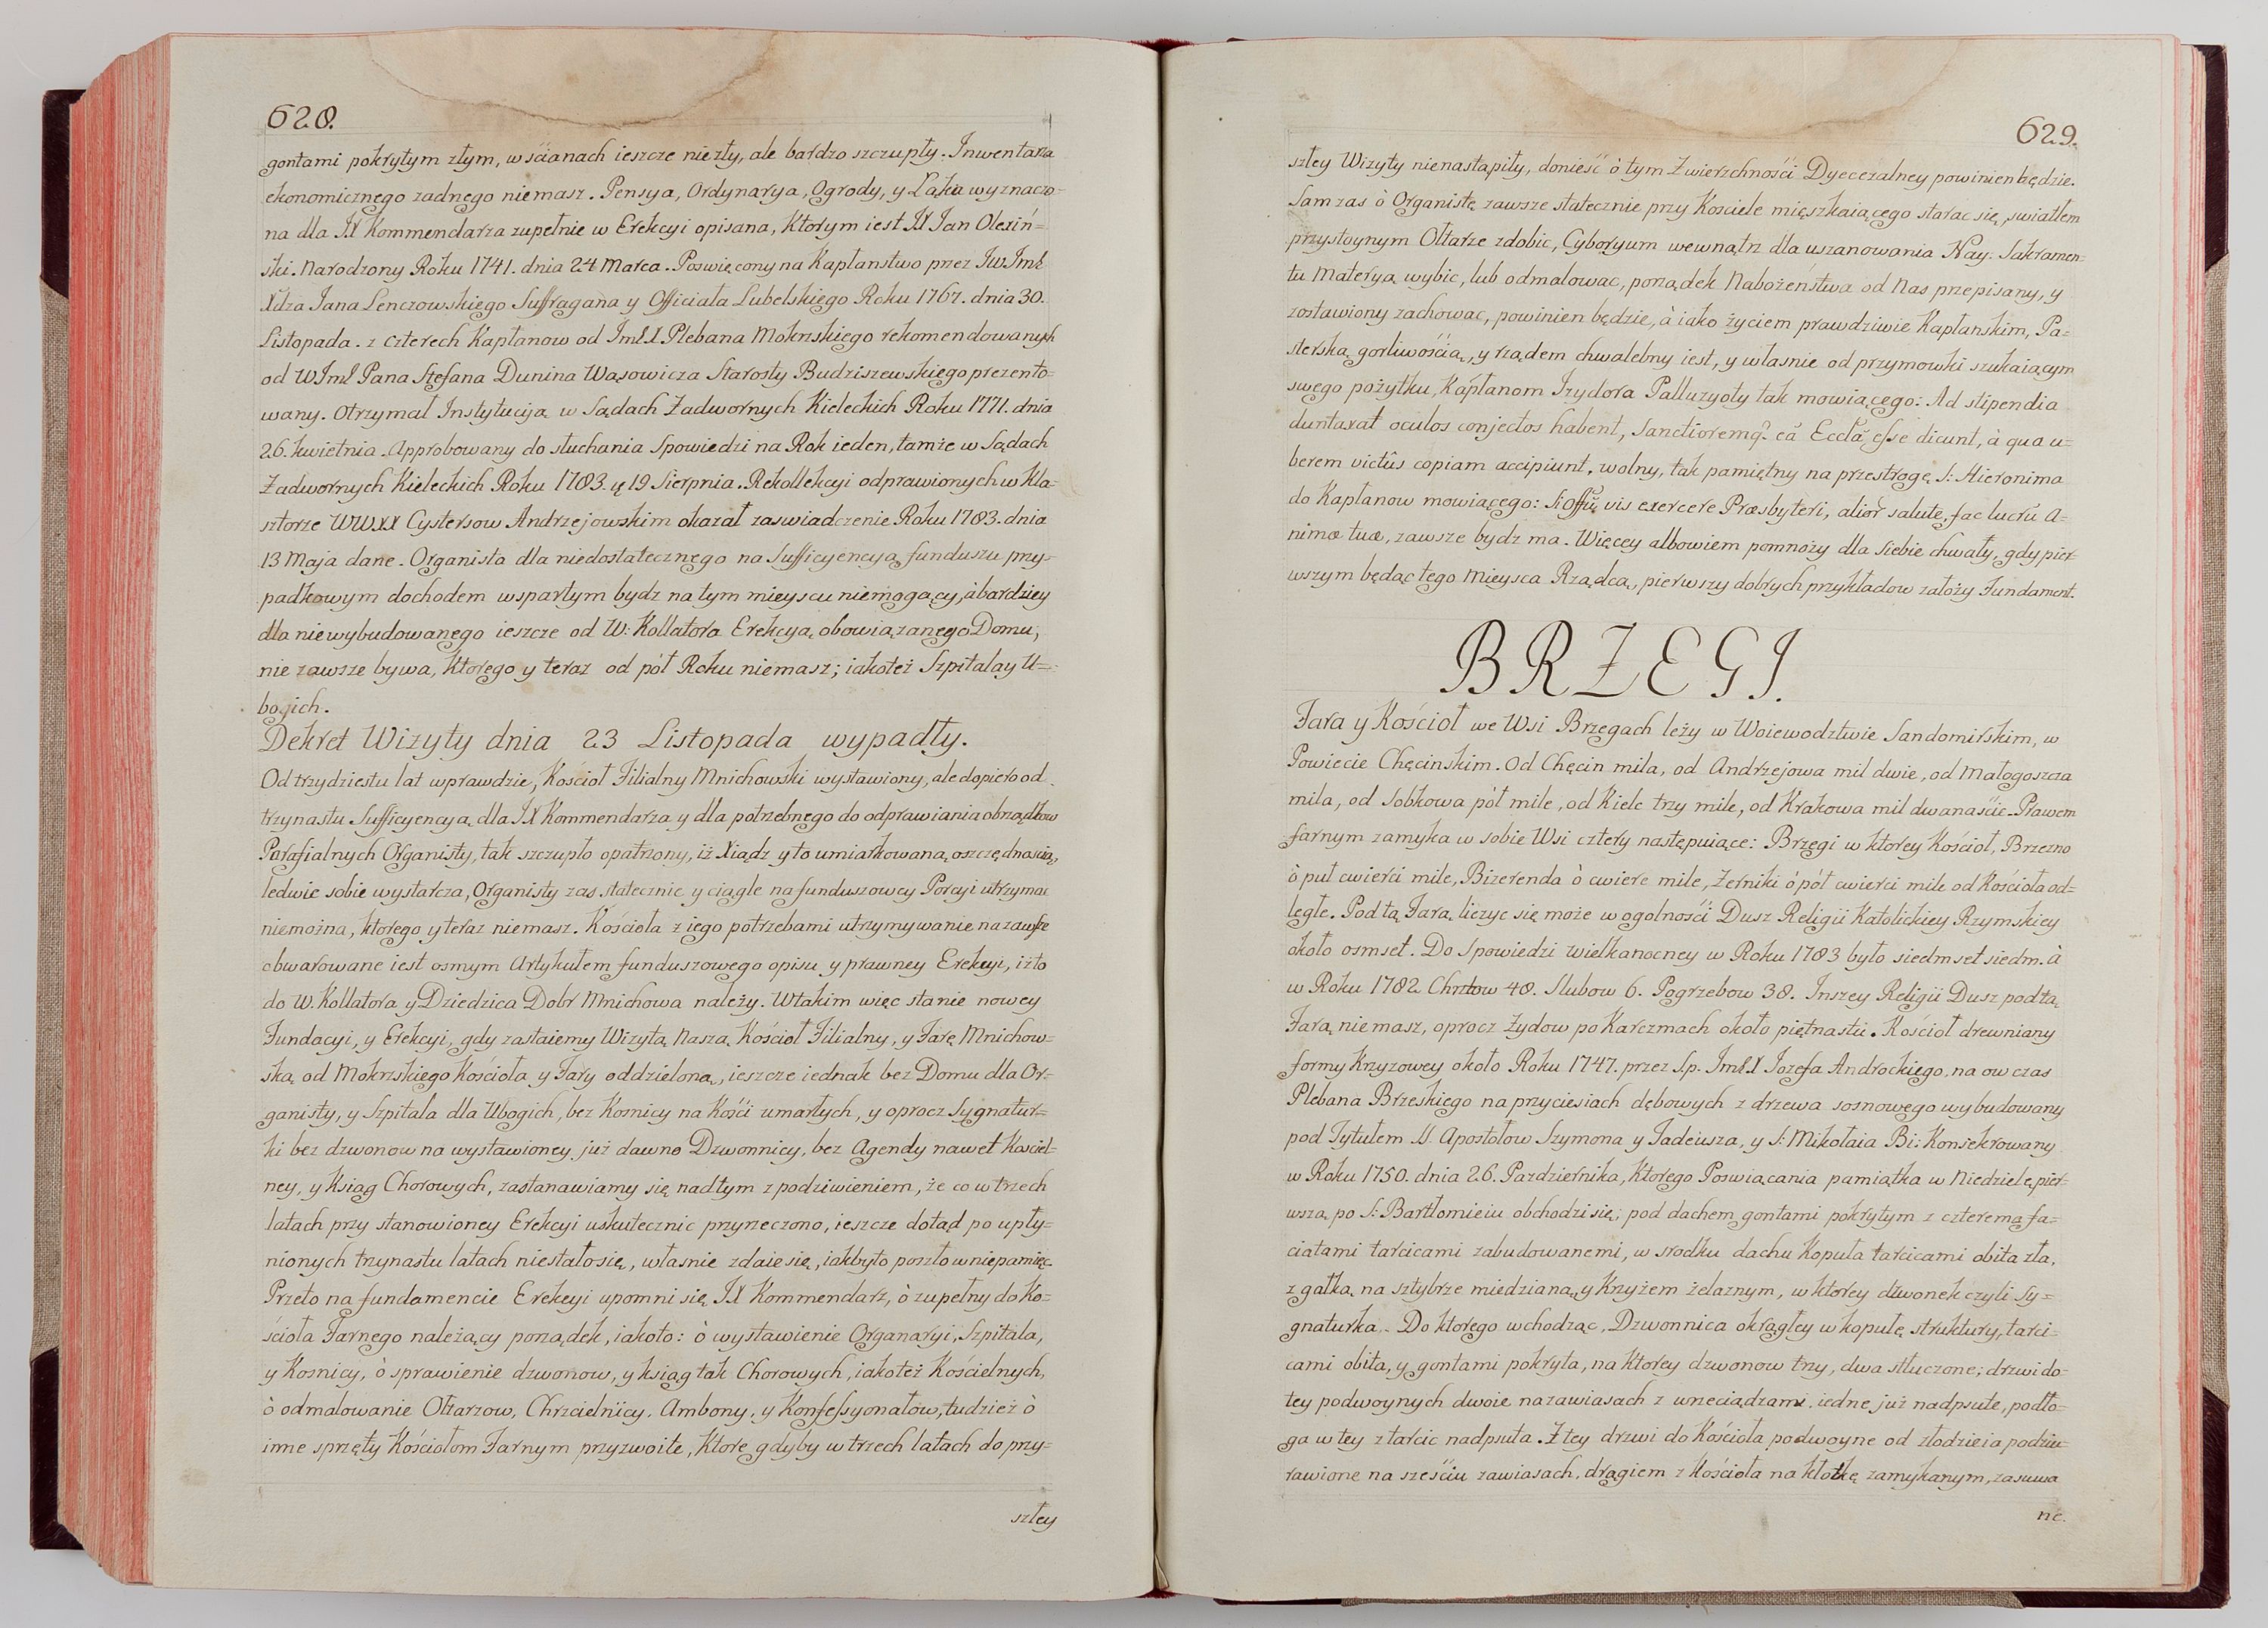 628.
gontami pokrytym złym, w ścianach ieszcze niezły, ale bardzo szczupły. Inwentarza
ekonomicznego zadnego niemasz. Pensya, Ordynarya, Ogrody, y Łąka wyznaczo=
na dla JX Kommendarza zupełnie w Erekcyi opisana, Ktorym iest JX Jan Olesiń=
ski. Narodzony Roku 1741. dnia 24 Marca. Poswięcony na Kapłanstwo przez JW Imć
Xdza Jana Lenczowskiego Suffragana y Officiała Lubelskiego Roku 1767. dnia 30.
Listopada. z czterech Kapłanow od Imć X Plebana Mokrskiego rekomendowanych
od WImć Pana Stefana Dunina Wąsowicza Starosty Budziszewskiego prezento=
wany. Otrzymał Instytucija w Sądach Zadwornych Kieleckich Roku 1771. dnia
26. kwietnia. Approbowany do słuchania Spowiedzi na Rok ieden, tamże w Sądach
Zadwornych Kieleckich Roku 1783. 19 Sierpnia. Rekollekcyi odprawionych w Kla=
sztorze WW.XX Cystersow Andrzejowskim okazał zaswiadczenie Roku 1783. dnia
13 Maja dane. Organista dla niedostatecznego na Sufficyencyą funduszu przy=
padkowym dochodem wspartym bydz na tym mieyscu niemogący, à bardziey
dla niewybudowanego ieszcze od W: Kollatora Erekcyą obowiązanego Domu,
nie zawsze bywa, Ktorego y teraz od pół Roku niemasz; iakoteż Szpitala y U=
bogich.
Dekret Wizyty dnia 23 Listopada wypadły.
Od trzydziestu lat wprawdzie, Kościoł Filialny Mnichowski wystawiony, ale dopiero od
trzynastu Sufficyencyą dla JX Kommendarza y dla potrzebnego do odprawiania obrządkow
Parafialnych Organisty, tak szczupło opatrzony, iż Xiądz y to umiarkowaną oszczędnoscią,
ledwie sobie wystarcza, Organisty zas statecznie y ciągle na funduszowey Porcyi utrzymac
niemożna, ktorego y teraz niemasz. Kościoła z iego potrzebami utrzymywanie na zawsze
obwarowane iest osmym Artykułem funduszowego opisu y prawney Erekcyi, iż to
do W. Kollatora y Dziedzica Dobr Mnichowa należy. W takim więc stanie nowey
Fundacyi, y Erekcyi, gdy zastaiemy Wizytą Naszą Kościoł Filialny, y Farę Mnichow=
ską od Mokrskiego Kościoła y Fary oddzieloną, ieszcze iednak bez Domu dla Or=
ganisty, y Szpitala dla Ubogich, bez Kosnicy na Kości umarłych, y oprocz Sygnatur=
ki bez dzwonow na wystawioney już dawno Dzwonnicy, bez Agendy nawet Kosciel=
ney, y Ksiąg Chorowych, zastanawiamy się nad tym z podziwieniem, że co w trzech
latach przy stanowioney Erekcyi uskutecznic przyrzeczono, ieszcze dotąd po upły=
nionych trzynastu latach niestało się, własnie zdaie się, iakby to poszło w niepamięc.
Przeto na fundamencie Erekcyi upomni się JX Kommendarz, ò zupełny do Ko=
ścioła Farnego należący porządek, iako to: ò wystawienie Organaryi, Szpitala,
y Kosnicy, ò sprawienie dzwonow, y ksiąg tak Chorowych, iakoteż Kościelnych,
ò odmalowanie Ołtarzow, Chrzcielnicy, Ambony, y Konfessyonałow, tudzież ò
inne sprzęty Kościołom Farnym przyzwoite, Ktore gdyby w trzech latach do przy=
szłey
629.
szłey Wizyty nienastąpiły, donieść ò tym Zwierzchności Dyecezalney powinien będzie.
Sam zas ò Organistę zawsze statecznie przy Kosciele mięszkaiącego starac się, swiatłem
przystoynym Ołtarze zdobic, Cyboryum wewnątrz dla uszanowania Nay: Sakramen=
tu Materyą wybic, lub odmalowac, porządek Nabożeństwa od Nas przepisany, y
zostawiony zachowac, powinien będzie, à iako życiem prawdziwie Kapłanskim, Pa=
sterską gorliwością, y rządem chwalebny iest, y własnie od przymowki szukaiącym
swego pożytku, Kapłanom Izydora Palluzyoty tak mowiącego: Ad stipendia
duntaxat oculos conjectos habent, Sanctioremq̃ eã Ecclã esse dicunt, à qua u=
berem victûs copiam accipiunt, wolny, tak pamiętny na przestrogę S: Hieronima
do Kapłanow mowiącego: Si offiũ vis exercere Præsbyteri, alior̃ salutẽ, fac lucrũ a=
nimæ tuæ, zawsze bydz ma. Więcey albowiem pomnoży dla siebie chwały, gdy pier=
wszym będąc tego Mieysca Rządcą, pierwszy dobrych przykładow założy Fundament.
BRZEGI.
Fara y Kościoł we Wsi Brzegach leży w Woiewodztwie Sandomirskim, w
Powiecie Chęcinskim. Od Chęcin mila, od Andrzejowa mil dwie, od Małogoszcza
mila, od Sobkowa pół mile, od Kielc trzy mile, od Krakowa mil dwanaście. Prawem
farnym zamyka w sobie Wsi cztery następuiące: Brzegi w ktorey Kościoł, Brzezno
ò puł cwierci mile, Bizerenda ò cwierc mile, Zerniki ò pół cwierci mile od Kościoła od=
ległe. Pod tą Farą liczyc się może w ogolności Dusz Religii Katolickiey Rzymskiey
około osmset. Do Spowiedzi Wielkanocney w Roku 1783 było siedmset siedm. à
w Roku 1782 Chrztow 48. Slubow 6. Pogrzebow 38. Inszey Religii Dusz pod tą
Farą niemasz, oprocz Żydow po Karczmach około piętnastu. Kościoł drewniany
formy Krzyzowey około Roku 1747. przez Sp. Imć X Jozefa Androckiego, na ow czas
Plebana Brzeskiego na przyciesiach dębowych z drzewa sosnowego wybudowany
pod Tytułem SS. Apostołow Szymona y Tadeusza, y S: Mikołaia Bi: Konsekrowany
w Roku 1750. dnia 26. Pazdziernika, Ktorego Poswiącania pamiątka w Niedzielę pier=
wszą po S: Bartłomieiu obchodzi się; pod dachem gontami pokrytym z czterema fa=
ciatami tarcicami zabudowanemi, w srodku dachu Kopuła tarcicami obita zła,
z gałką na sztybrze miedzianą, y Krzyżem żelaznym, w ktorey dzwonek czyli Sy=
gnaturka. Do ktorego wchodząc, Dzwonnica okrągłey w kopułę struktury, tarci=
cami obita, y gontami pokryta, na Ktorey dzwonow trzy, dwa stłuczone; drzwi do=
tey podwoynych dwoie na zawiasach z wrzeciądzami, iedne już nadpsute, podło=
ga w tey z tarcic nadpsuta. Z tey drzwi do Kościoła podwoyne od złodzieia podziu=
rawione na sześciu zawiasach, drągiem z Kościoła na kłotkę zamykanym, zasuwa
ne.